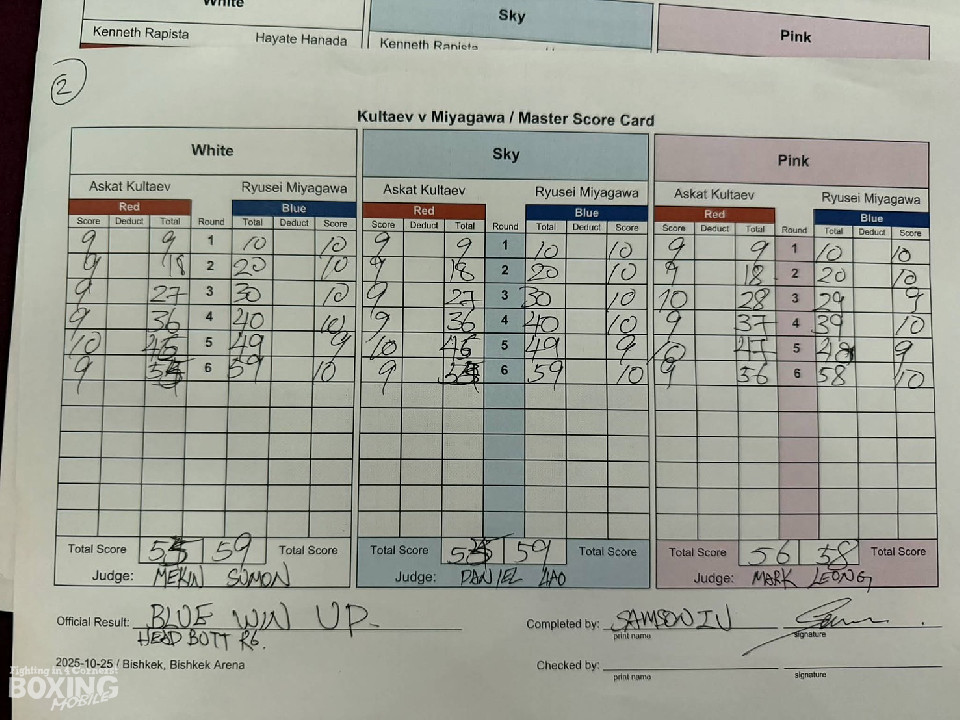 White
Sky
Pink
Kenneth Rapista Hayate Hanada Kenneth Rapista
2
Kultaev v Miyagawa / Master Score Card
White Sky Pink
Askat Kultaev Ryusei Miyagawa Askat Kultaev Ryusei Miyagawa Askat Kultaev Ryusei Miyagawa
Red Blue Red Blue Red Blue
Score Deduct Total Round Total Deduct Score Score Deduct Total Round Total Deduct Score Score Deduct Total Round Total Deduct Score
9 9 1 10 10 9 9 1 10 10 9 9 1 10 10
9 18 2 20 10 9 18 2 20 10 9 18 2 20 10
9 27 3 30 10 9 27 3 30 10 10 28 3 29 9
9 36 4 40 10 9 36 4 40 10 9 37 4 39 10
10 5 49 9 10 5 49 9 10 47 5 48 9
9 6 59 10 9 6 59 10 9 56 6 58 10
Total Score 59 Total Score Total Score 59 Total Score Total Score 56 58 Total Score
Judge: MEKIN SUMON Judge: DANIEL Judge: MARK LEONG
Official Result: BLUE WIN UP. Completed by: SAMSON IU
HEAD BUTT R6. print name signature
2025-10-25 / Bishkek, Bishkek Arena Checked by:
print name signature
Fighting in 4 Corners!
BOXING
MOBILE